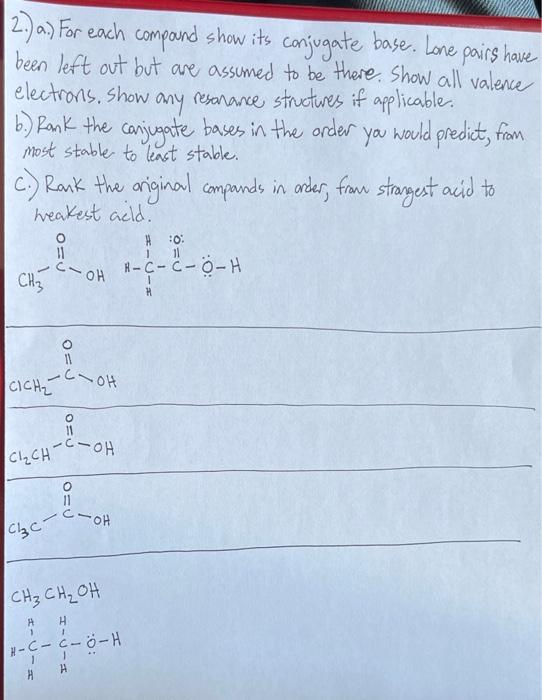 2.) a.) For each compound show its conjugate base. Lone pairs have
been left out but are assumed to be there. Show all valence
electrons. Show any resonance structures if applicable.
b.) Rank the conjugate bases in the order you would predict, from
most stable to least stable.
C.) Rank the original compounds in order, from strongest acid to
weakest acid.
O H :O:
|| | ||
CH3 - C - OH H - C - C - Ö - H
|
H
O
||
ClCH2 - C - OH
O
||
Cl2CH - C - OH
O
||
Cl3C - C - OH
CH3 CH2 OH
H H
| |
H - C - C - Ö - H
| |
H H